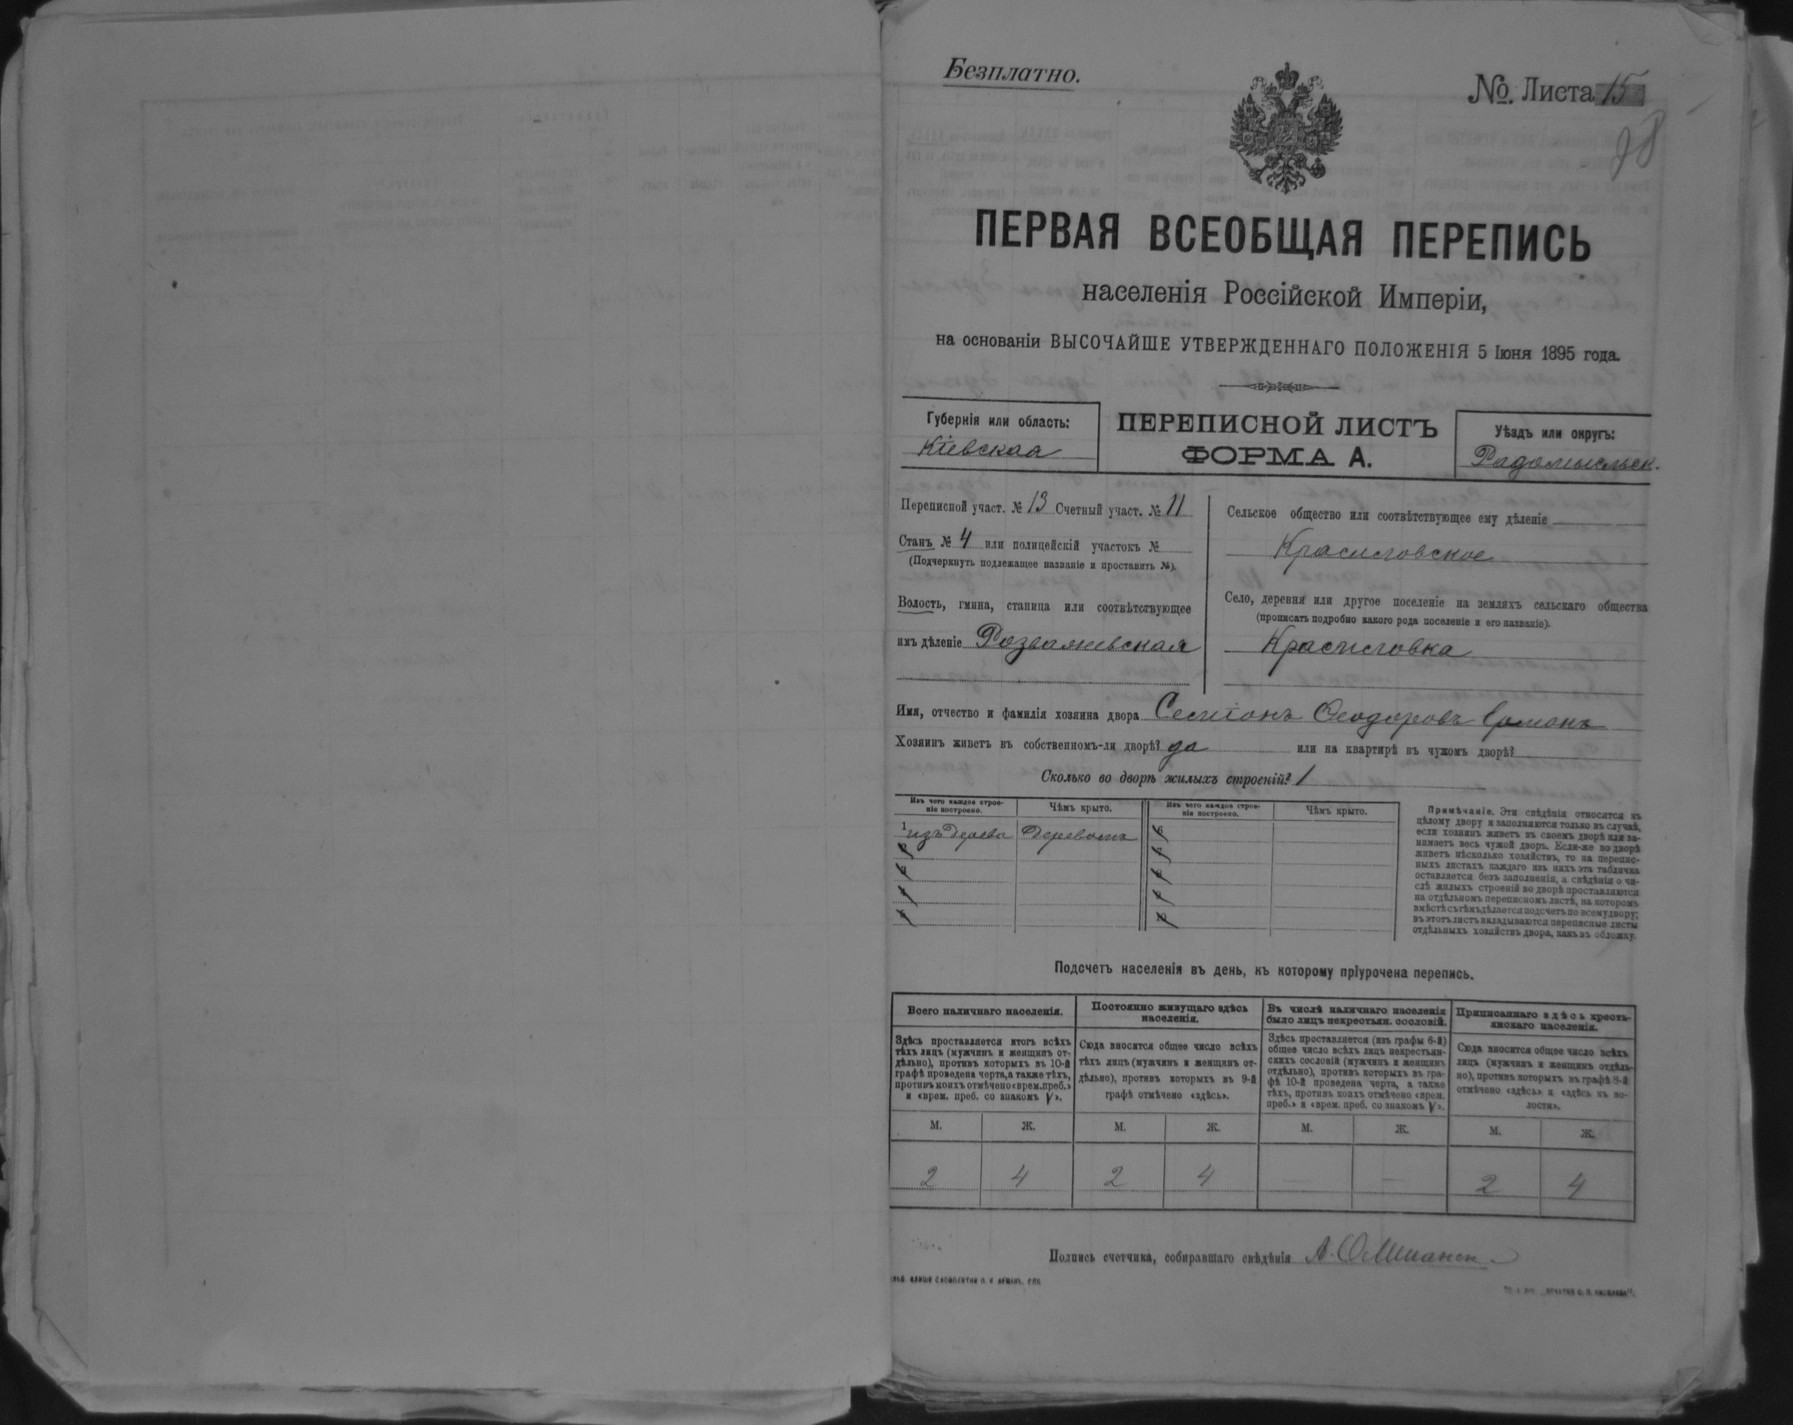 Безплатно.
№. Листа 15
98
ПЕРВАЯ ВСЕОБЩАЯ ПЕРЕПИСЬ
населенія Россійской Имперіи,
на основаніи ВЫСОЧАЙШЕ УТВЕРЖДЕННАГО ПОЛОЖЕНІЯ 5 Іюня 1895 года.
Губернія или область:
Кіевская
ПЕРЕПИСНОЙ ЛИСТЪ
ФОРМА А.
Уѣздъ или округъ:
Радомысльск.
Переписной участ. № 13 Счетный участ. № 11
Станъ № 4 или полицейскій участокъ №
(Подчеркнуть подлежащее названіе и проставить №).
Волость, гмина, станица или соотвѣтствующее
имъ дѣленіе Розважевская
Сельское общество или соотвѣтствующее ему дѣленіе
Село, деревня или другое поселеніе на земляхъ сельскаго общества
(прописать подробно какого рода поселеніе и его названіе).
Имя, отчество и фамилія хозяина двора Семіонъ Феодоровъ
Хозяинъ живетъ въ собственномъ-ли дворѣ? да или на квартирѣ въ чужомъ дворѣ?
Сколько во дворѣ жилыхъ строеній? 1
Изъ чего каждое строеніе построено.
Чѣмъ крыто.
Изъ чего каждое строеніе построено.
Чѣмъ крыто.
1 изъ дерева Деревомъ
Примѣчаніе. Эти свѣдѣнія относятся къ
цѣлому двору и заполняются только въ случаѣ,
если хозяинъ живетъ въ своемъ дворѣ или за-
нимаетъ весь чужой дворъ. Если-же во дворѣ
живетъ нѣсколько хозяйствъ, то на перепис-
ныхъ листахъ каждаго изъ нихъ эта табличка
оставляется безъ заполненія, а свѣдѣнія о чи-
слѣ жилыхъ строеній во дворѣ проставляются
на отдѣльномъ переписномъ листѣ, на которомъ
вмѣстѣ съ тѣмъ дѣлается подсчетъ по всему двору;
въ этотъ листъ вкладываются переписные листы
отдѣльныхъ хозяйствъ двора, какъ въ обложку.
Подсчетъ населенія въ день, къ которому пріурочена перепись.
Всего наличнаго населенія.
Здѣсь проставляется итогъ всѣхъ
тѣхъ лицъ (мужчинъ и женщинъ от-
дѣльно), противъ которыхъ въ 10-й
графѣ проведена черта, а также тѣхъ,
противъ коихъ отмѣчено «врем. преб.»
и «врем. преб. со знакомъ V».
Постоянно живущаго здѣсь
населенія.
Сюда вносится общее число всѣхъ
тѣхъ лицъ (мужчинъ и женщинъ от-
дѣльно), противъ которыхъ въ 9-й
графѣ отмѣчено «здѣсь».
Въ числѣ наличнаго населенія
было лицъ некрестьян. сословій.
Здѣсь проставляется (изъ графы 6-й)
общее число всѣхъ лицъ некрестьян-
скихъ сословій (мужчинъ и женщинъ
отдѣльно), противъ которыхъ въ гра-
фѣ 10-й проведена черта, а также
тѣхъ, противъ коихъ отмѣчено «врем.
преб.» и «врем. преб. со знакомъ V».
Приписаннаго здѣсь кресть-
янскаго населенія.
Сюда вносится общее число всѣхъ
лицъ (мужчинъ и женщинъ отдѣль-
но), противъ которыхъ въ графѣ 8-й
отмѣчено «здѣсь» и «здѣсь къ во-
лости».
М. Ж. М. Ж. М. Ж. М. Ж.
2 4 2 4 — — 2 4
Подпись счетчика, собиравшаго свѣдѣнія